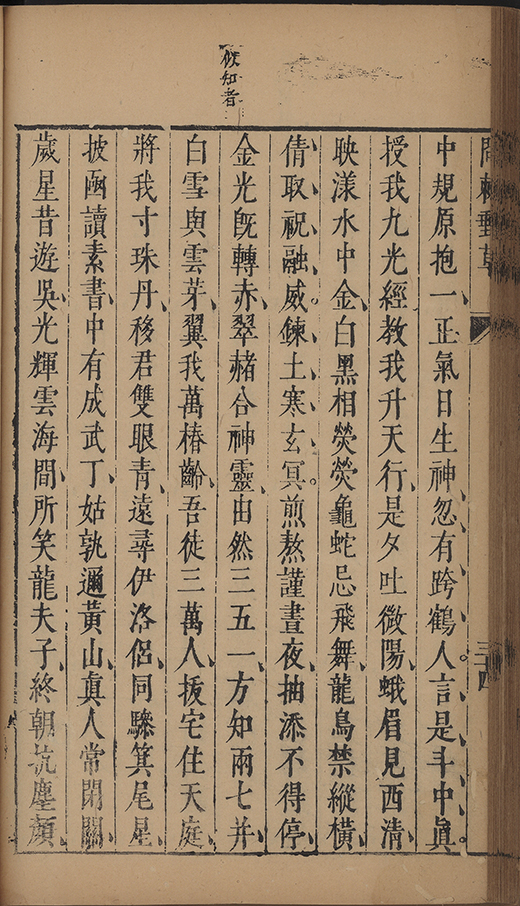 問棘郵草
三四
中規原抱一正氣日生神忽有跨鶴人言是斗中眞
授我九光經教我升天行是夕吐微陽蛾眉見西清
映漾水中金白黑相熒熒龜蛇忌飛舞龍鳥禁縱橫
倩取祝融威鍊土寒玄冥煎熬謹晝夜抽添不得停
金光旣轉赤翠赭合神靈由然三五一方知兩七并
知者
白雪與雲芽翼我萬椿齡吾徒三萬人拔宅住天庭
將我寸珠丹移君雙眼青遠尋伊洛侶同驂箕尾星
披函讀素書中有成武丁姑孰邇黃山眞人常閉關
歲星昔遊吳光輝雲海間所笑龍夫子終朝抗塵顏